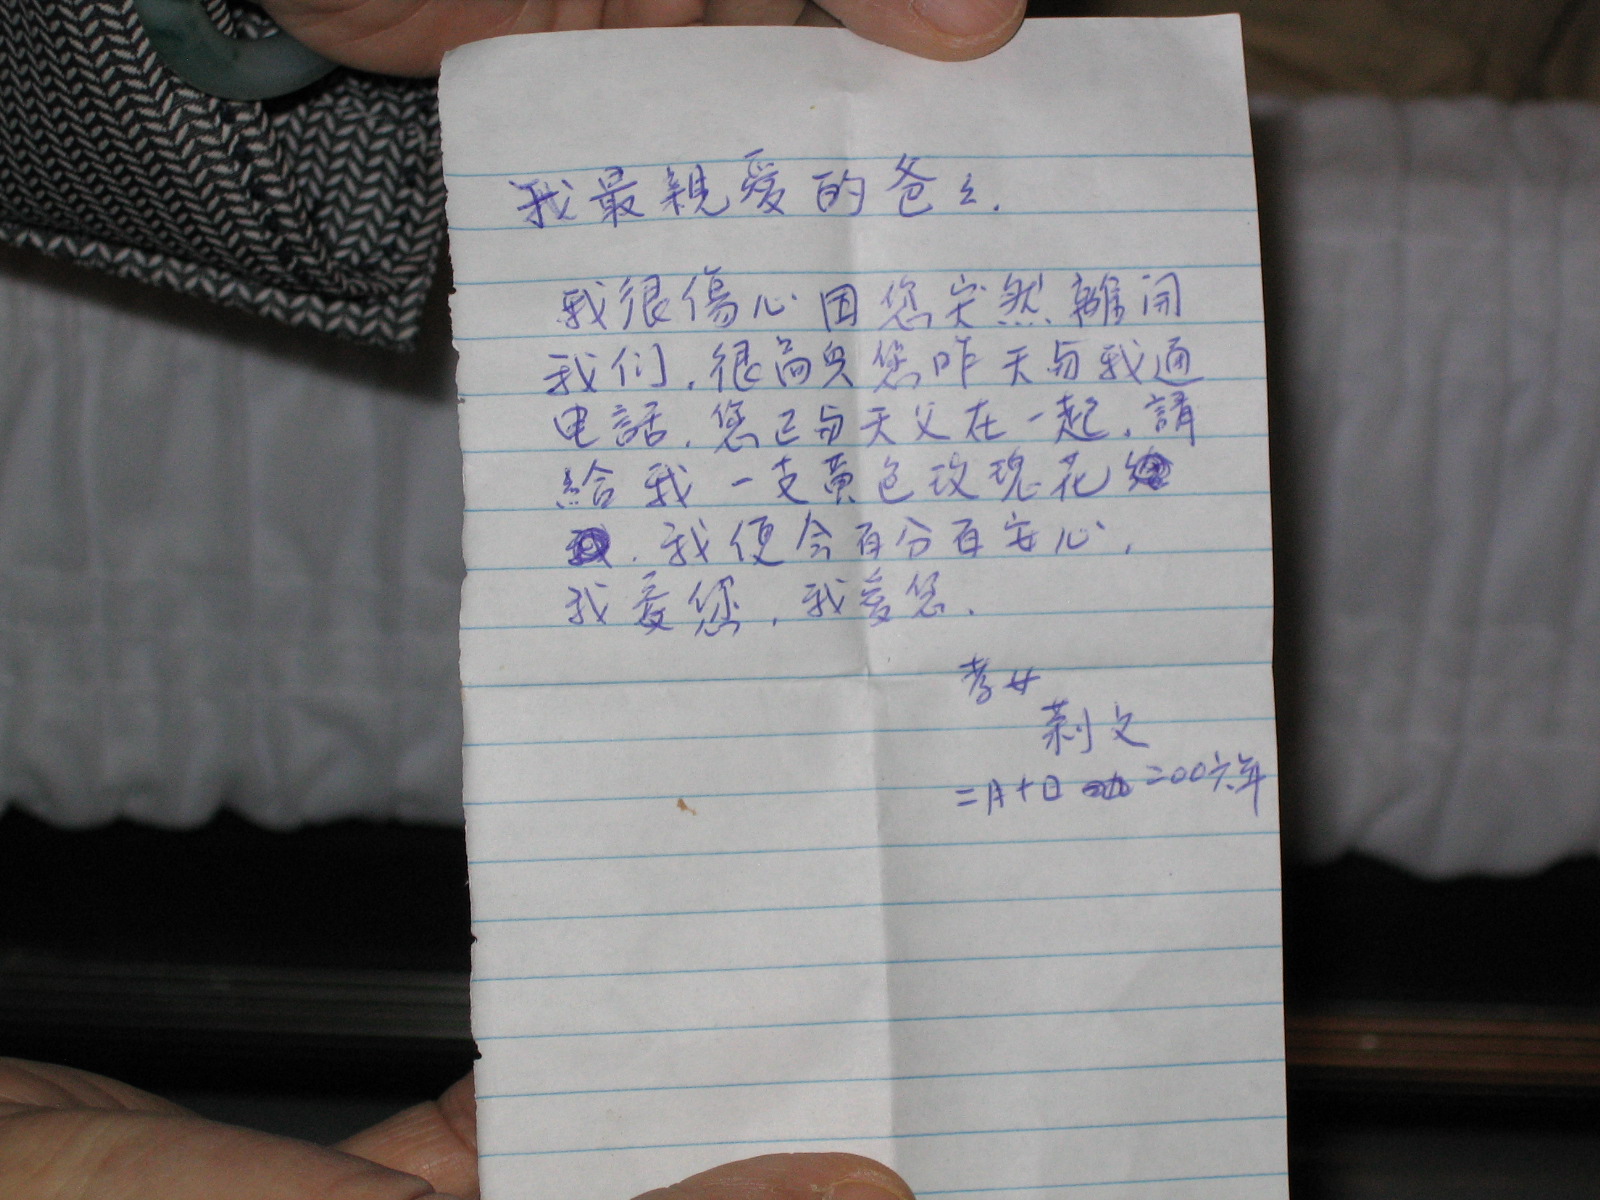 我最親愛的爸々.
我很傷心因您突然離開
我们.很高兴您昨天与我通
电話.您已与天父在一起.請
給我一支黃色玫瑰花
.我便会百分百安心.
我爱您.我爱您.
孝女
莉文
二月十日 二00六年